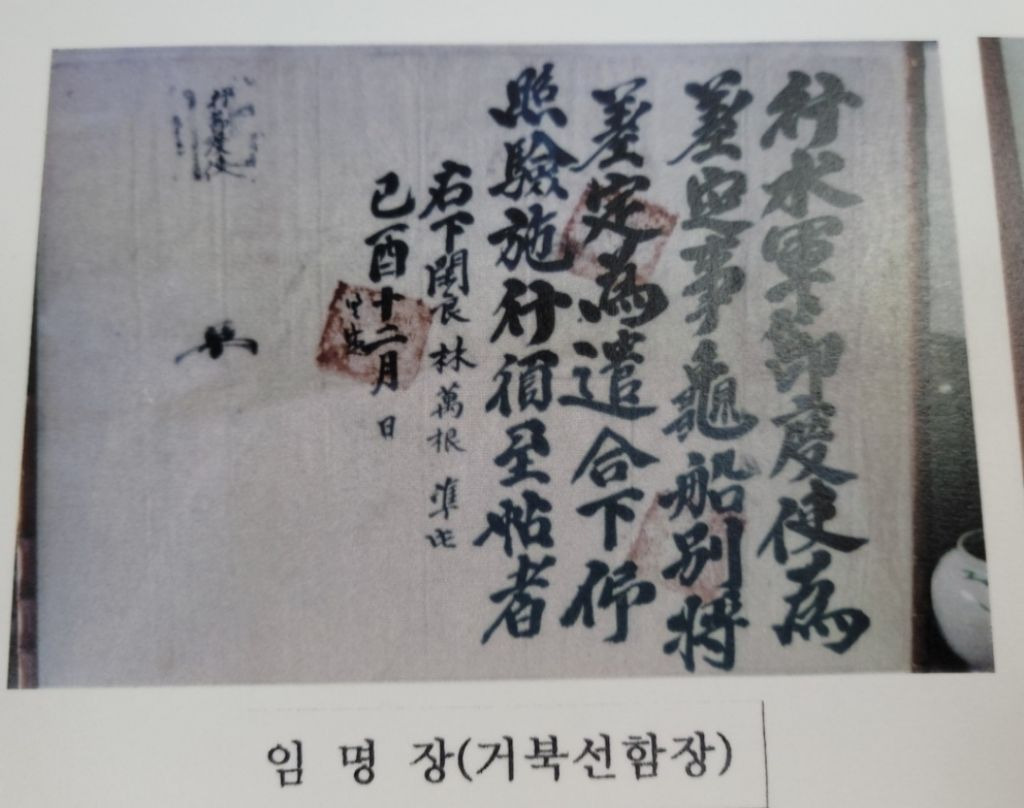 行水軍節度使為
差定事龜船別將
差定為遣合下仰
照驗施行須至帖者
右下閑良 林萬根 準此
己酉十二月 日
行節度使
임 명 장(거북선함장)